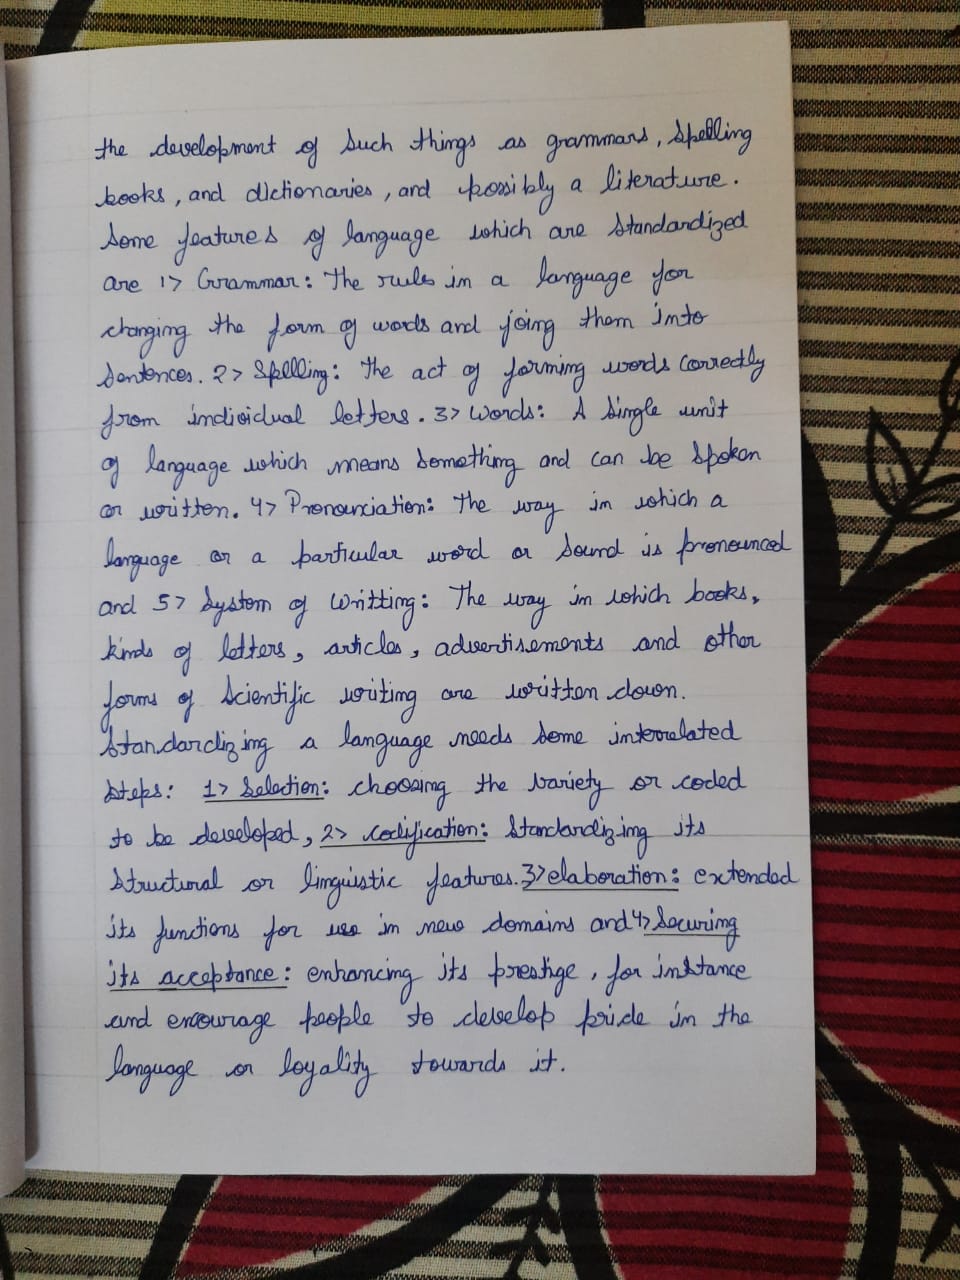 the development of such things as grammars, spelling
books, and dictionaries, and possibly a literature.
Some features of language which are standardized
are 1> Grammar: The rules in a language for
changing the form of words and joing them into
sentences. 2> Spelling: The act of forming words correctly
from individual letters. 3> Words: A single unit
of language which means something and can be spoken
or written. 4> Pronounciation: The way in which a
language or a particular word or sound is pronounced
and 5> System of Writting: The way in which books,
kinds of letters, articles, advertisements and other
forms of scientific writing are written down.
Standardizing a language needs some interrelated
steps: 1> Selection: choosing the variety or coded
to be developed, 2> codification: Standardizing its
structural or linguistic features. 3> elaboration: extended
its functions for use in new domains and 4> Securing
its acceptance: enhancing its prestige, for instance
and encourage people to develop pride in the
language or loyality towards it.